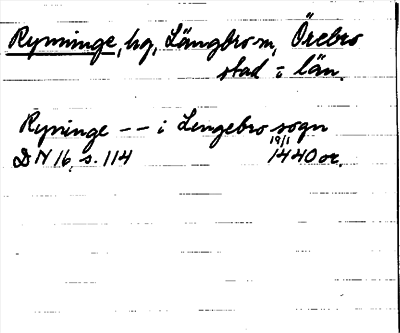 Rynninge, hg, Längbro sn, Örebro
stad o län.
Ryninge -- i Lengebro sogn
19/1
DN 16, s. 114 1440 or.